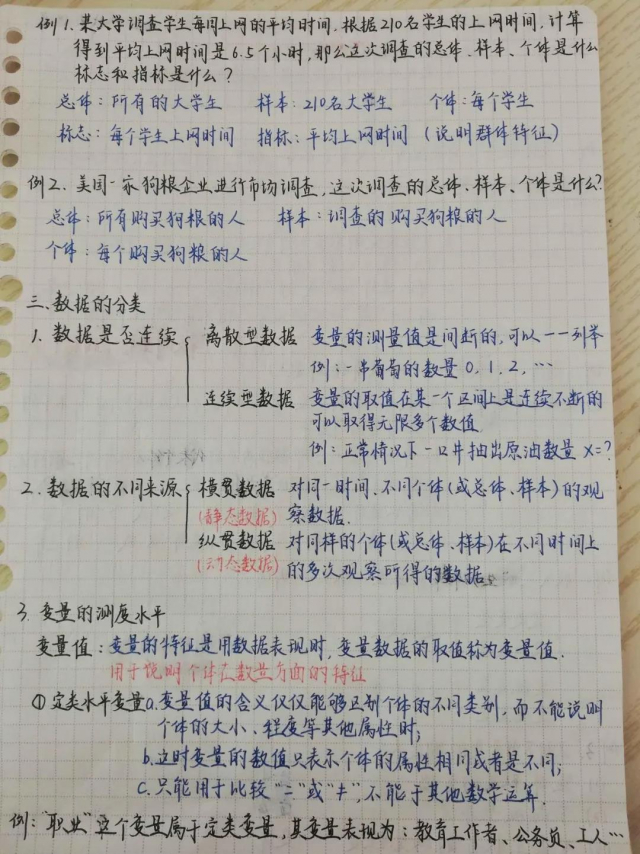 例1. 某大学调查学生每周上网的平均时间,根据210名学生的上网时间,计算
得到平均上网时间是6.5个小时,那么这次调查的总体、样本、个体是什么
标志和指标是什么?
总体:所有的大学生 样本:210名大学生 个体:每个学生
标志:每个学生上网时间 指标:平均上网时间(说明群体特征)
例2. 美国一家狗粮企业进行市场调查,这次调查的总体、样本、个体是什么?
总体:所有购买狗粮的人 样本:调查的购买狗粮的人
个体:每个购买狗粮的人
三、数据的分类
1. 数据是否连续 离散型数据 变量的测量值是间断的,可以一一列举
例:一串葡萄的数量 0, 1, 2, …
连续型数据 变量的取值在某一个区间上是连续不断的
可以取得无限多个数值
例:正常情况下一口井抽出原油数量 X=?
2. 数据的不同来源 横贯数据 对同一时间、不同个体(或总体、样本)的观
(静态数据) 察数据.
纵贯数据 对同样的个体(或总体、样本)在不同时间上
(动态数据) 的多次观察所得的数据
3. 变量的测度水平
变量值:变量的特征是用数据表现时,变量数据的取值称为变量值.
用于说明个体在数量方面的特征
①定类水平变量a.变量值的含义仅仅能够区别个体的不同类别,而不能说明
个体的大小、程度等其他属性时;
b.这时变量的数值只表示个体的属性相同或者是不同;
c.只能用于比较“=”或“≠”,不能于其他数学运算.
例:“职业”这个变量属于定类变量,其变量表现为:教育工作者、公务员、工人…